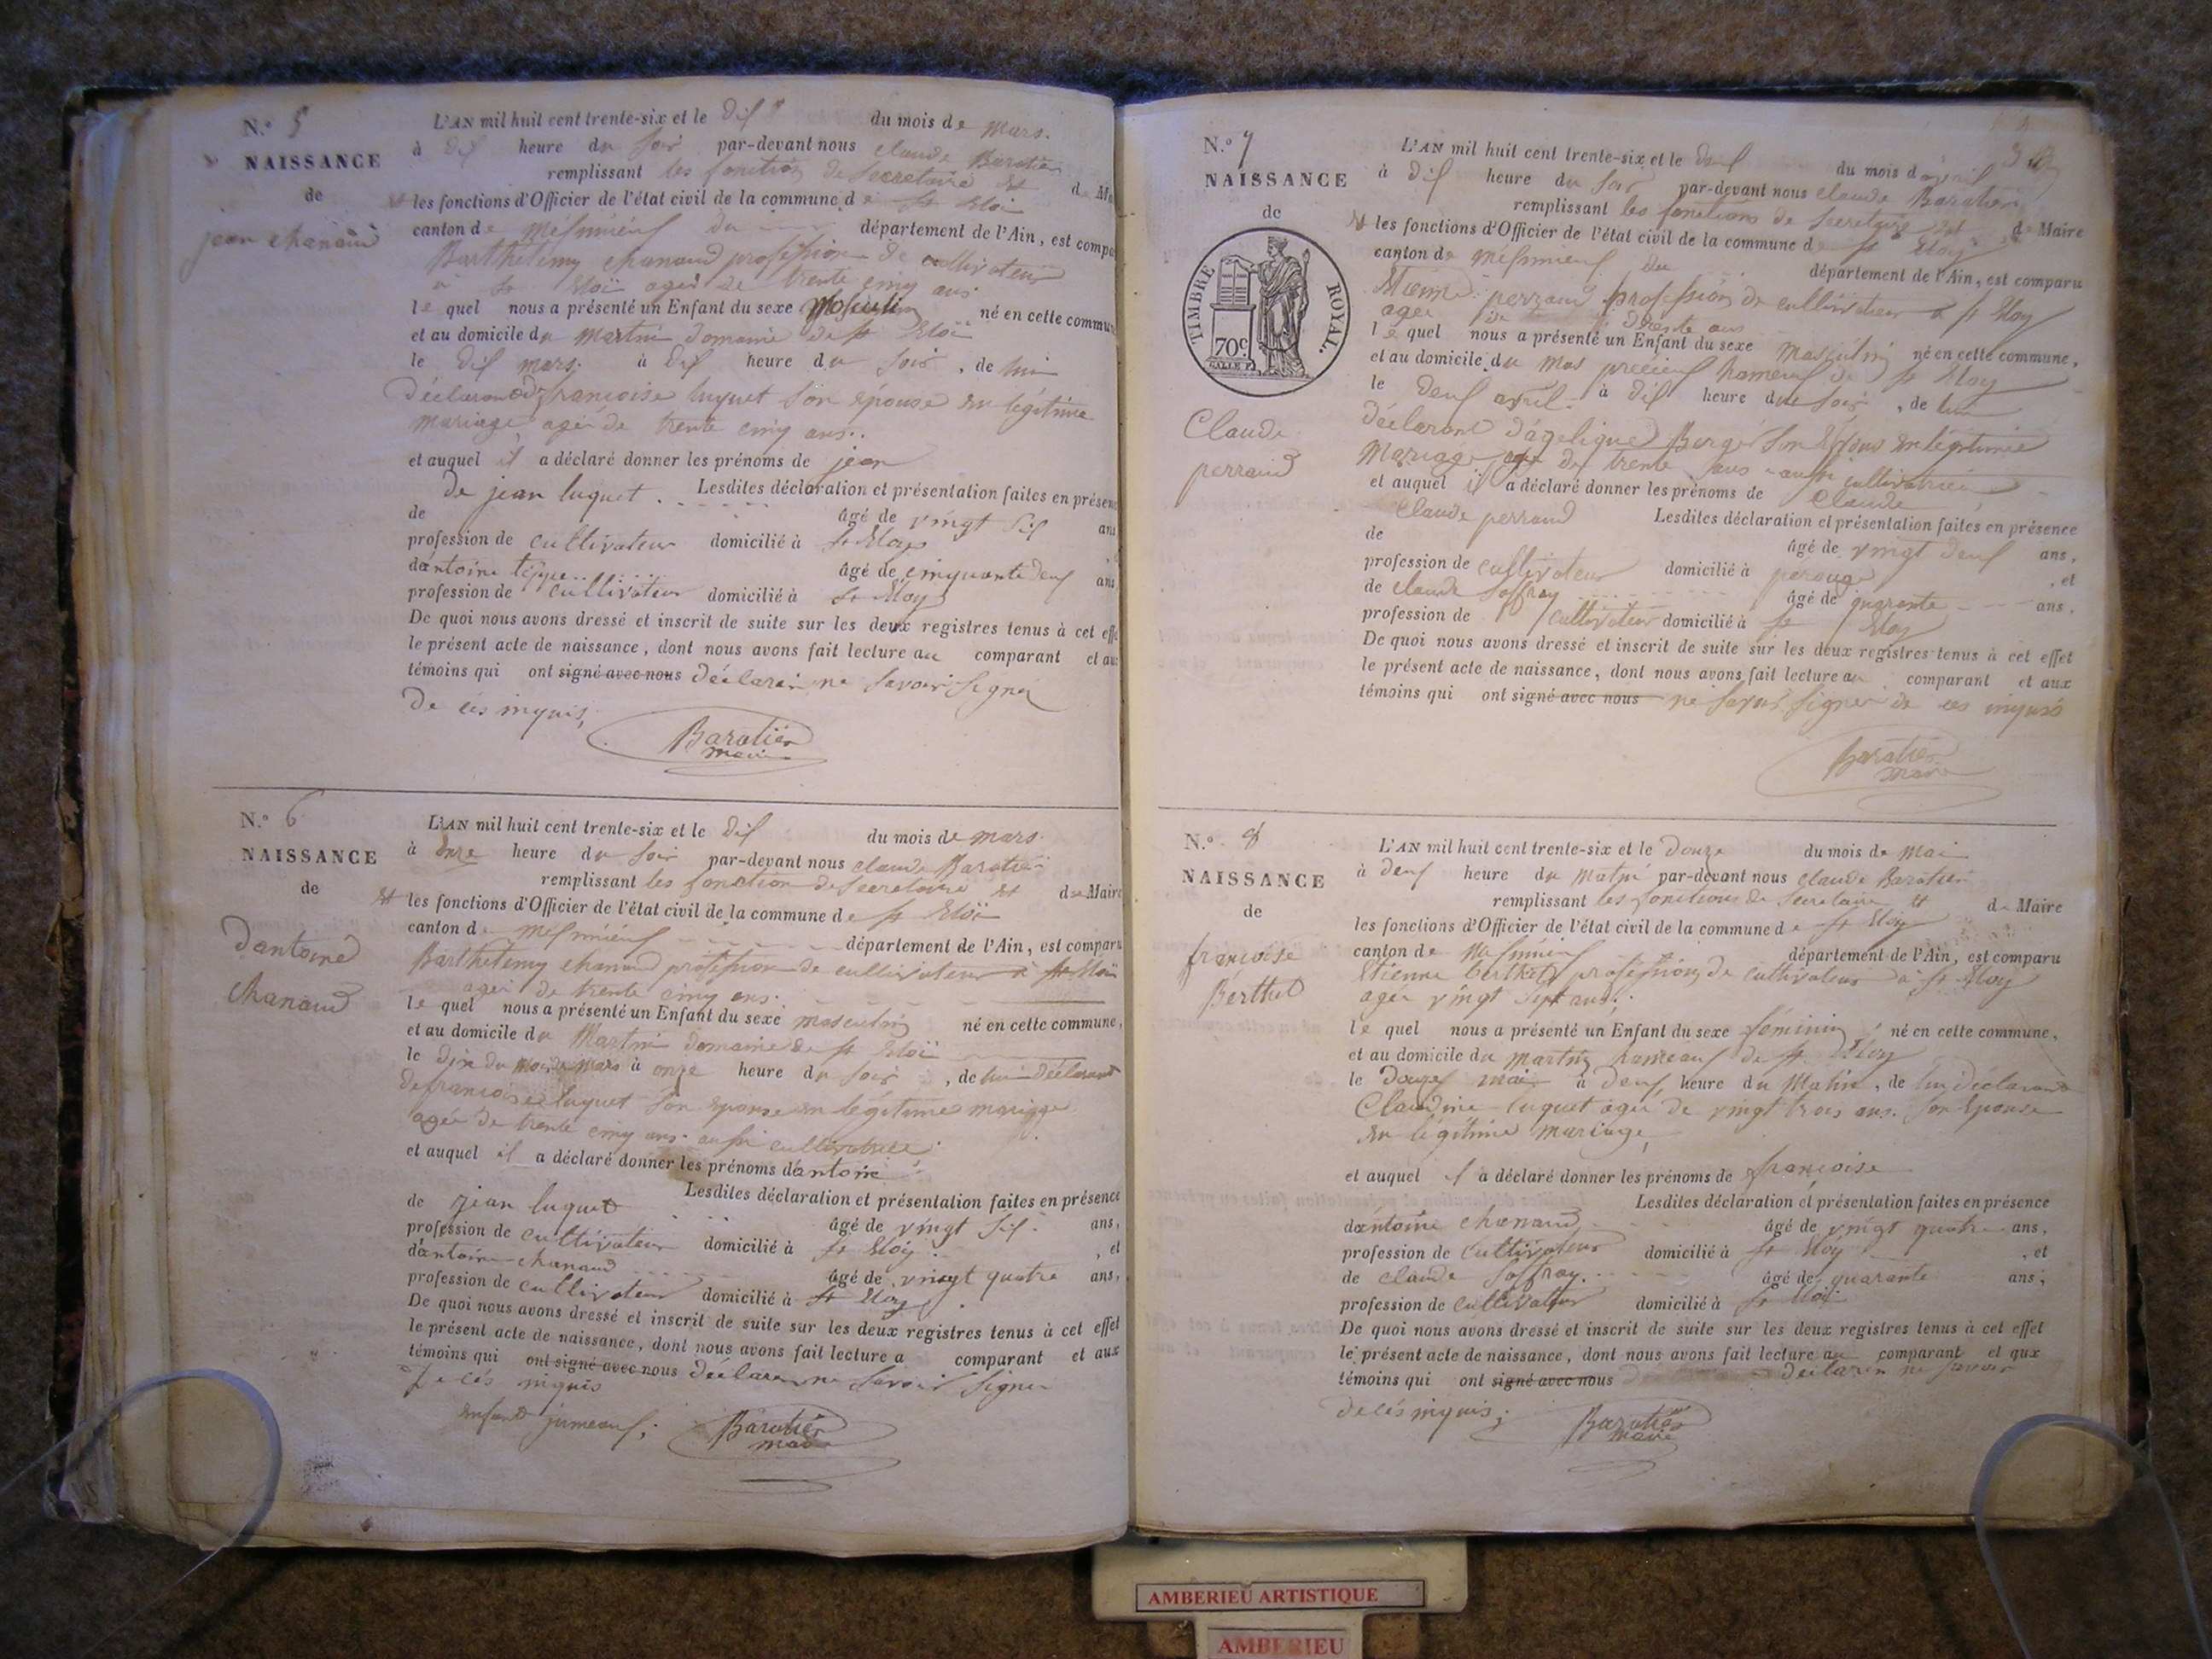 N.º 5
NAISSANCE
de
jean chanaud
L'AN mil huit cent trente-six et le dix du mois de mars.
à dix heure du soir par-devant nous claude Baratier
remplissant les fonction de secretaire et de Ma
les fonctions d'Officier de l'état civil de la commune de st Eloi
canton de mesimieux du département de l'Ain, est compa
Barthélemy chanaud profession de cultivateur
a st Eloi agér de trente cinq ans
le quel nous a présenté un Enfant du sexe Masculin né en cette commun
et au domicile du Martin domaine de st Eloï
le dix mars. à dix heure du soir, de lui
déclarand de françoise luquet son épouse en légitime
mariage, agér de trente cinq ans..
et auquel il a déclaré donner les prénoms de jean
Lesdites déclaration et présentation faites en présen
de jean luquet.
de âgé de vingt six ans
profession de cultivateur domicilié à st Eloy
dantoine âgé de cinquante deux ans
profession de cultivateur domicilié à st Eloy
De quoi nous avons dressé et inscrit de suite sur les deux registres tenus à cet effe
le présent acte de naissance, dont nous avons fait lecture au comparant et aux
témoins qui ont signé avec nous déclaren ne savoir signer
De cés inquis,
Baratier
maire
N.º 6
NAISSANCE
de
Dantoine
chanaud
L'AN mil huit cent trente-six et le dix du mois de mars.
à onze heure du soir par-devant nous claude Baratier
remplissant les fonction de secretaire et de Maire
les fonctions d'Officier de l'état civil de la commune de st Eloï
canton de mesimieux département de l'Ain, est comparu
Barthelemy chanaud profession de cultivateur à st Eloi
ager de trente cinq ans.
le quel nous a présenté un Enfant du sexe masculin né en cette commune,
et au domicile du Martin domaine de st Eloï
le dix du mois de mars à onze heure du soir, de lui déclarant
de françoise luquet son épouse en légitime mariage
agér de trente cinq ans. aussi cultivatrice
et auquel il a déclaré donner les prénoms dantoine
Lesdites déclaration et présentation faites en présence
de jean luquet âgé de vingt six ans,
profession de cultivateur domicilié à st Eloy, et
dantoine chanaud âgé de vingt quatre ans,
profession de cultivateur domicilié à st Eloy
De quoi nous avons dressé et inscrit de suite sur les deux registres tenus à cet effet
le présent acte de naissance, dont nous avons fait lecture a comparant et aux
témoins qui ont signé avec nous déclaren ne savoir signer
De cés inquis
enfant jumeaux;
Baratier
maire
N.º 7
NAISSANCE
de
TIMBRE ROYAL.
70c
Claude
perraud
L'AN mil huit cent trente-six et le deux du mois davril
à dix heure du soir par-devant nous claude Baratier
remplissant les fonctions de secretaire et de Maire
les fonctions d'Officier de l'état civil de la commune de st Eloy
canton de mesimieux du département de l'Ain, est comparu
perraud profession de cultivateur a st Eloy
ager de trente ans
le quel nous a présenté un Enfant du sexe masculin né en cette commune,
et au domicile du mas hameux de st Eloy
le deux avril. à dix heure du soir, de lui
déclarant dagelique Berger son épouse en légitimée
Mariage de trente ans aussi cultivatrice
et auquel il a déclaré donner les prénoms de Claude
Lesdites déclaration et présentation faites en présence
claude perraud
de âgé de vingt deux ans,
profession de cultivateur domicilié à perouge, et
de claude Soffray âgé de quarante ans,
profession de cultivateur domicilié à st Eloy
De quoi nous avons dressé et inscrit de suite sur les deux registres tenus à cet effet
le présent acte de naissance, dont nous avons fait lecture au comparant et aux
témoins qui ont signé avec nous ne savoir signer de ces inquis
Baratier
maire
N.º 8
NAISSANCE
de
françoise
Berthet
L'AN mil huit cent trente-six et le Douze du mois de mai
à deux heure du matin par-devant nous claude Baratier
remplissant les fonctions de secretaire et de Maire
les fonctions d'Officier de l'état civil de la commune de st Eloy
canton de Mesimieux département de l'Ain, est comparu
Etienne berthet profession de cultivateur a st Eloy
agér vingt sept ans.
le quel nous a présenté un Enfant du sexe féminin né en cette commune,
et au domicile du martin hameaux de st Eloy
le Douze mai à deux heure du Matin, de lui déclarant
Claudine luquet agér de vingt trois ans. son Epouse
en légitime mariage,
et auquel il a déclaré donner les prénoms de françoise
Lesdites déclaration et présentation faites en présence
dantoine chanaud âgé de vingt quatre ans,
profession de cultivateur domicilié à st Eloy, et
de claude Soffray. âgé de quarante ans,
profession de cultivateur domicilié à st Eloy
De quoi nous avons dressé et inscrit de suite sur les deux registres tenus à cet effet
le présent acte de naissance, dont nous avons fait lecture au comparant et aux
témoins qui ont signé avec nous déclaren ne savoir
de cés inquis;
Baratier
maire
AMBERIEU ARTISTIQUE
AMBERIEU